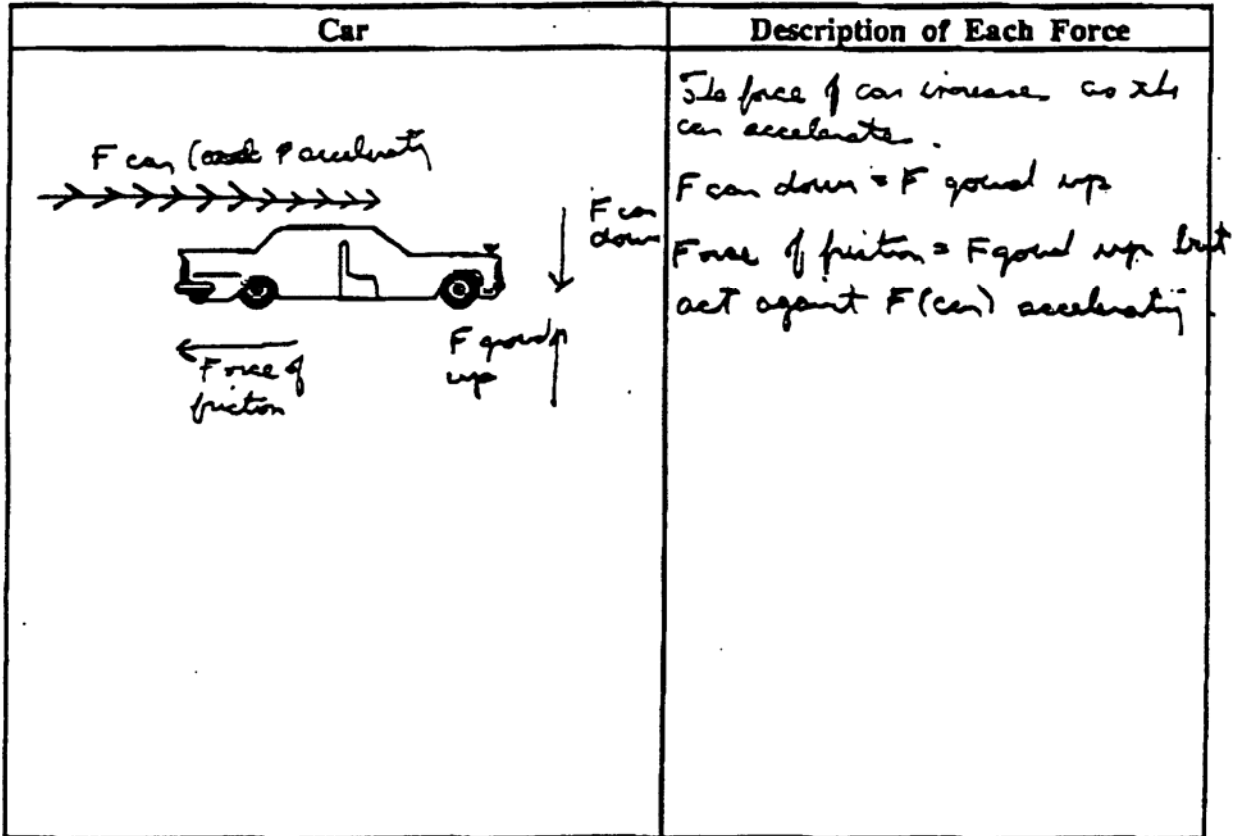 Car
Description of Each Force
F car ( accelerating
F car
down
Force of
friction
F ground
up
The force of car increases as the
car accelerates.
F car down = F ground up
Force of friction = F ground up but
act against F (car) accelerating.